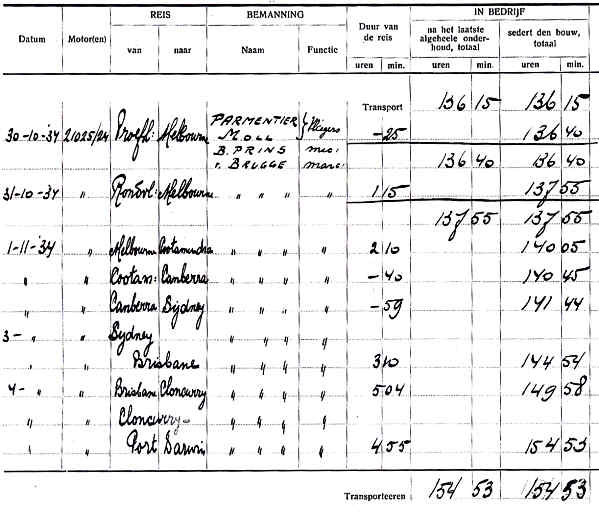 Datum Motor(en) REIS BEMANNING Duur van de reis IN BEDRIJF
van naar Naam Functie uren min. na het laatste algeheele onderhoud, totaal sedert den bouw, totaal
uren min. uren min.
Transport 136 15 136 15
30-10-'34 21025/24 Proefvl: Melbourne PARMENTIER } Vliegers -25 136 40
M. OLL
B. PRINS mec: 136 40 136 40
v. BRUGGE marc:
31-10-'34 " Rondvl: Melbourne " " " " 1 15 137 55
137 55 137 55
1-11-'34 " Melbourne Cootamundra " " " " " 2 10 140 05
" " Cootam: Canberra " " " " " -40 140 45
" " Canberra Sydney " " " " " -59 141 44
3- " " Sydney " " " " "
" " Brisbane " " " " " 3 10 144 54
4- " " Brisbane Cloncurry " " " " " 5 04 149 58
" " Cloncurry- " " " " "
" " Port Darwin " " " " " 4 55 154 53
Transporteeren 154 53 154 53